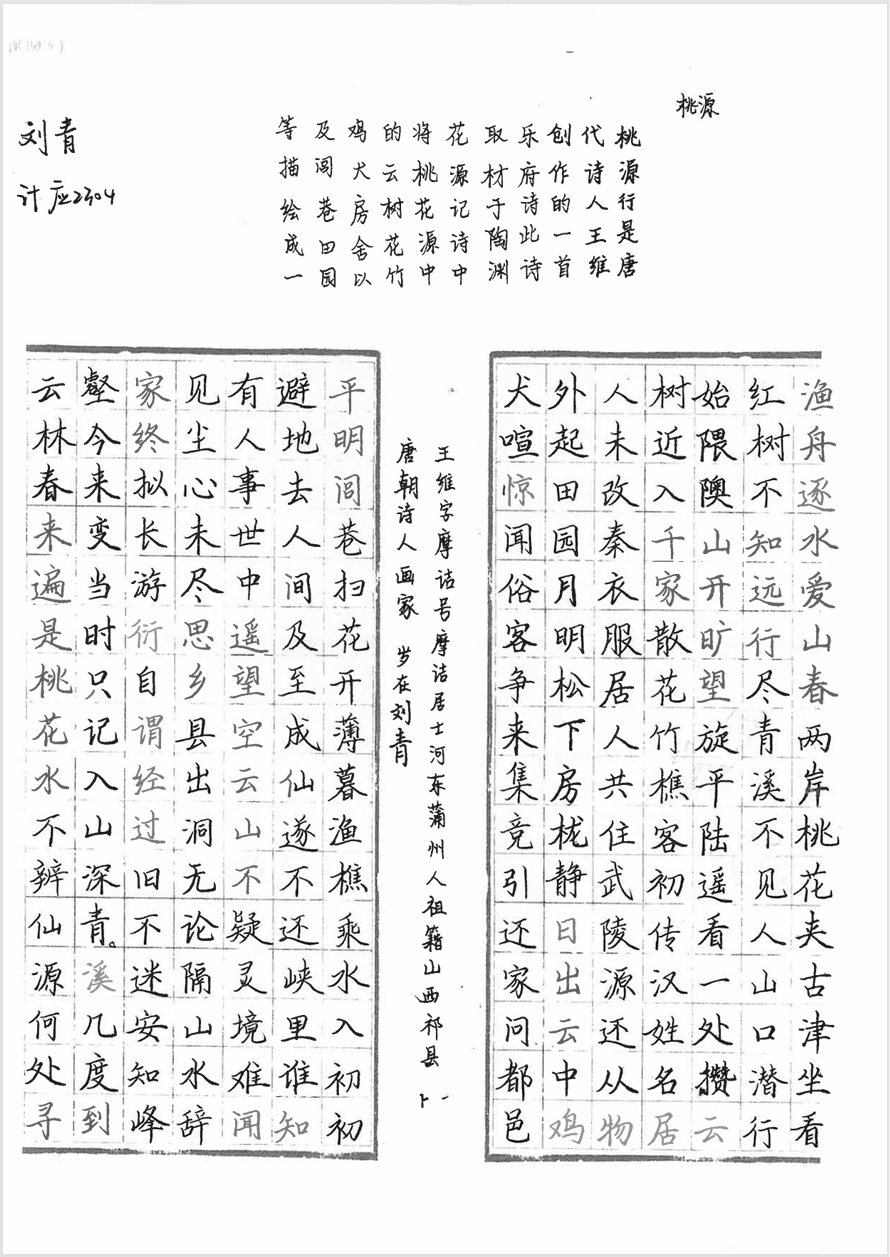 桃源
刘青
计应2304
桃源行是唐
代诗人王维
创作的一首
乐府诗此诗
取材于陶渊
花源记诗中
将桃花源中
的云树花竹
鸡犬房舍以
及闾巷田园
等描绘成一
渔舟逐水爱山春两岸桃花夹古津坐看
红树不知远行尽青溪不见人山口潜行
始隈隩山开旷望旋平陆遥看一处攒云
树近入千家散花竹樵客初传汉姓名居
人未改秦衣服居人共住武陵源还从物
外起田园月明松下房栊静日出云中鸡
犬喧惊闻俗客争来集竞引还家问都邑
王维字摩诘号摩诘居士河东蒲州人祖籍山西祁县
唐朝诗人画家 岁在刘青
平明闾巷扫花开薄暮渔樵乘水入初初
避地去人间及至成仙遂不还峡里谁知
有人事世中遥望空云山不疑灵境难闻
见尘心未尽思乡县出洞无论隔山水辞
家终拟长游衍自谓经过旧不迷安知峰
壑今来变当时只记入山深青。溪几度到
云林春来遍是桃花水不辨仙源何处寻